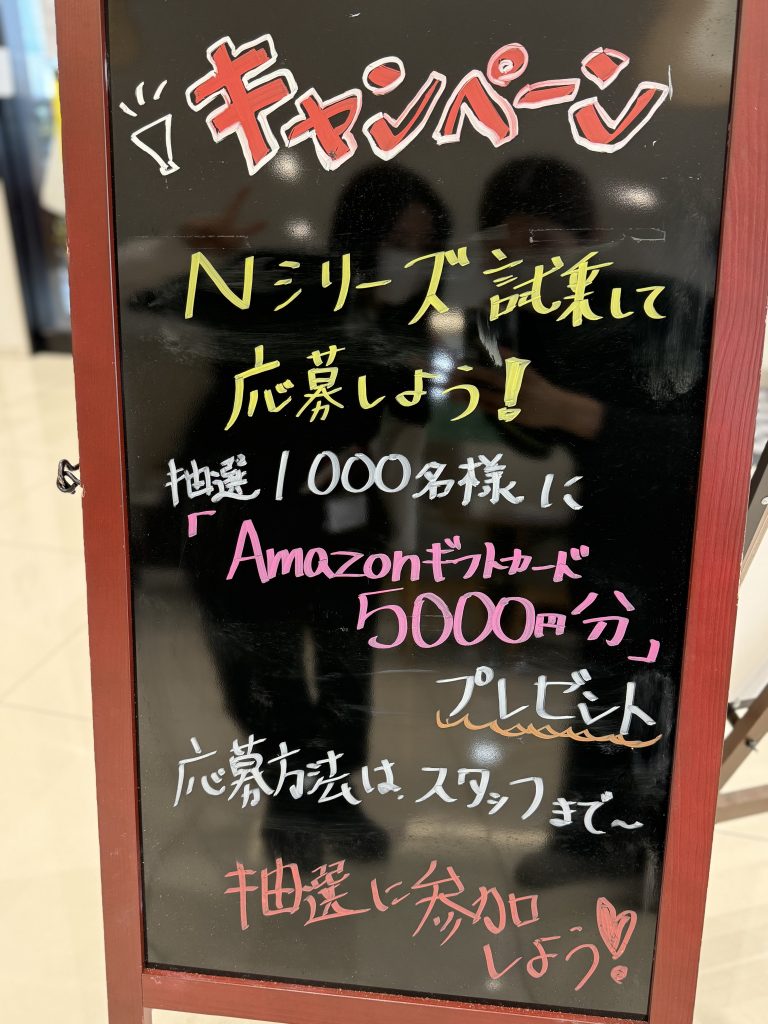 キャンペーン
Nシリーズ試乗して
応募しよう!
抽選1000名様に
「Amazonギフトカード
5000円分」
プレゼント
応募方法は、スタッフまで~
抽選に参加
しよう!